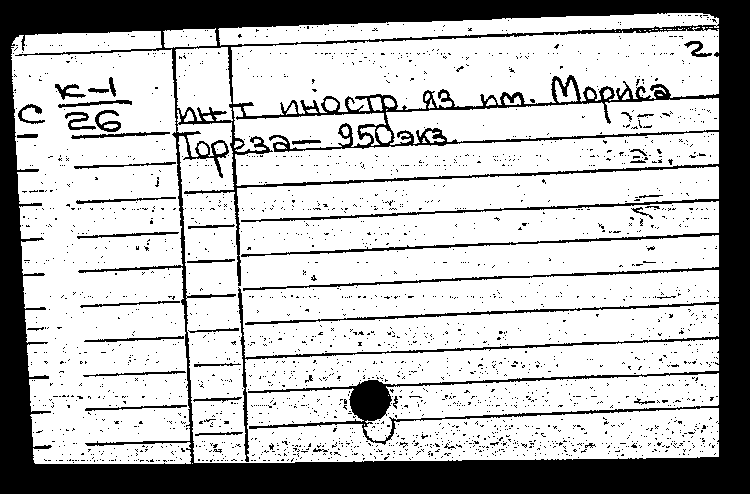 2.
С К-1
26
ин-т иностр. яз им. Мориса
Тореза — 950экз.